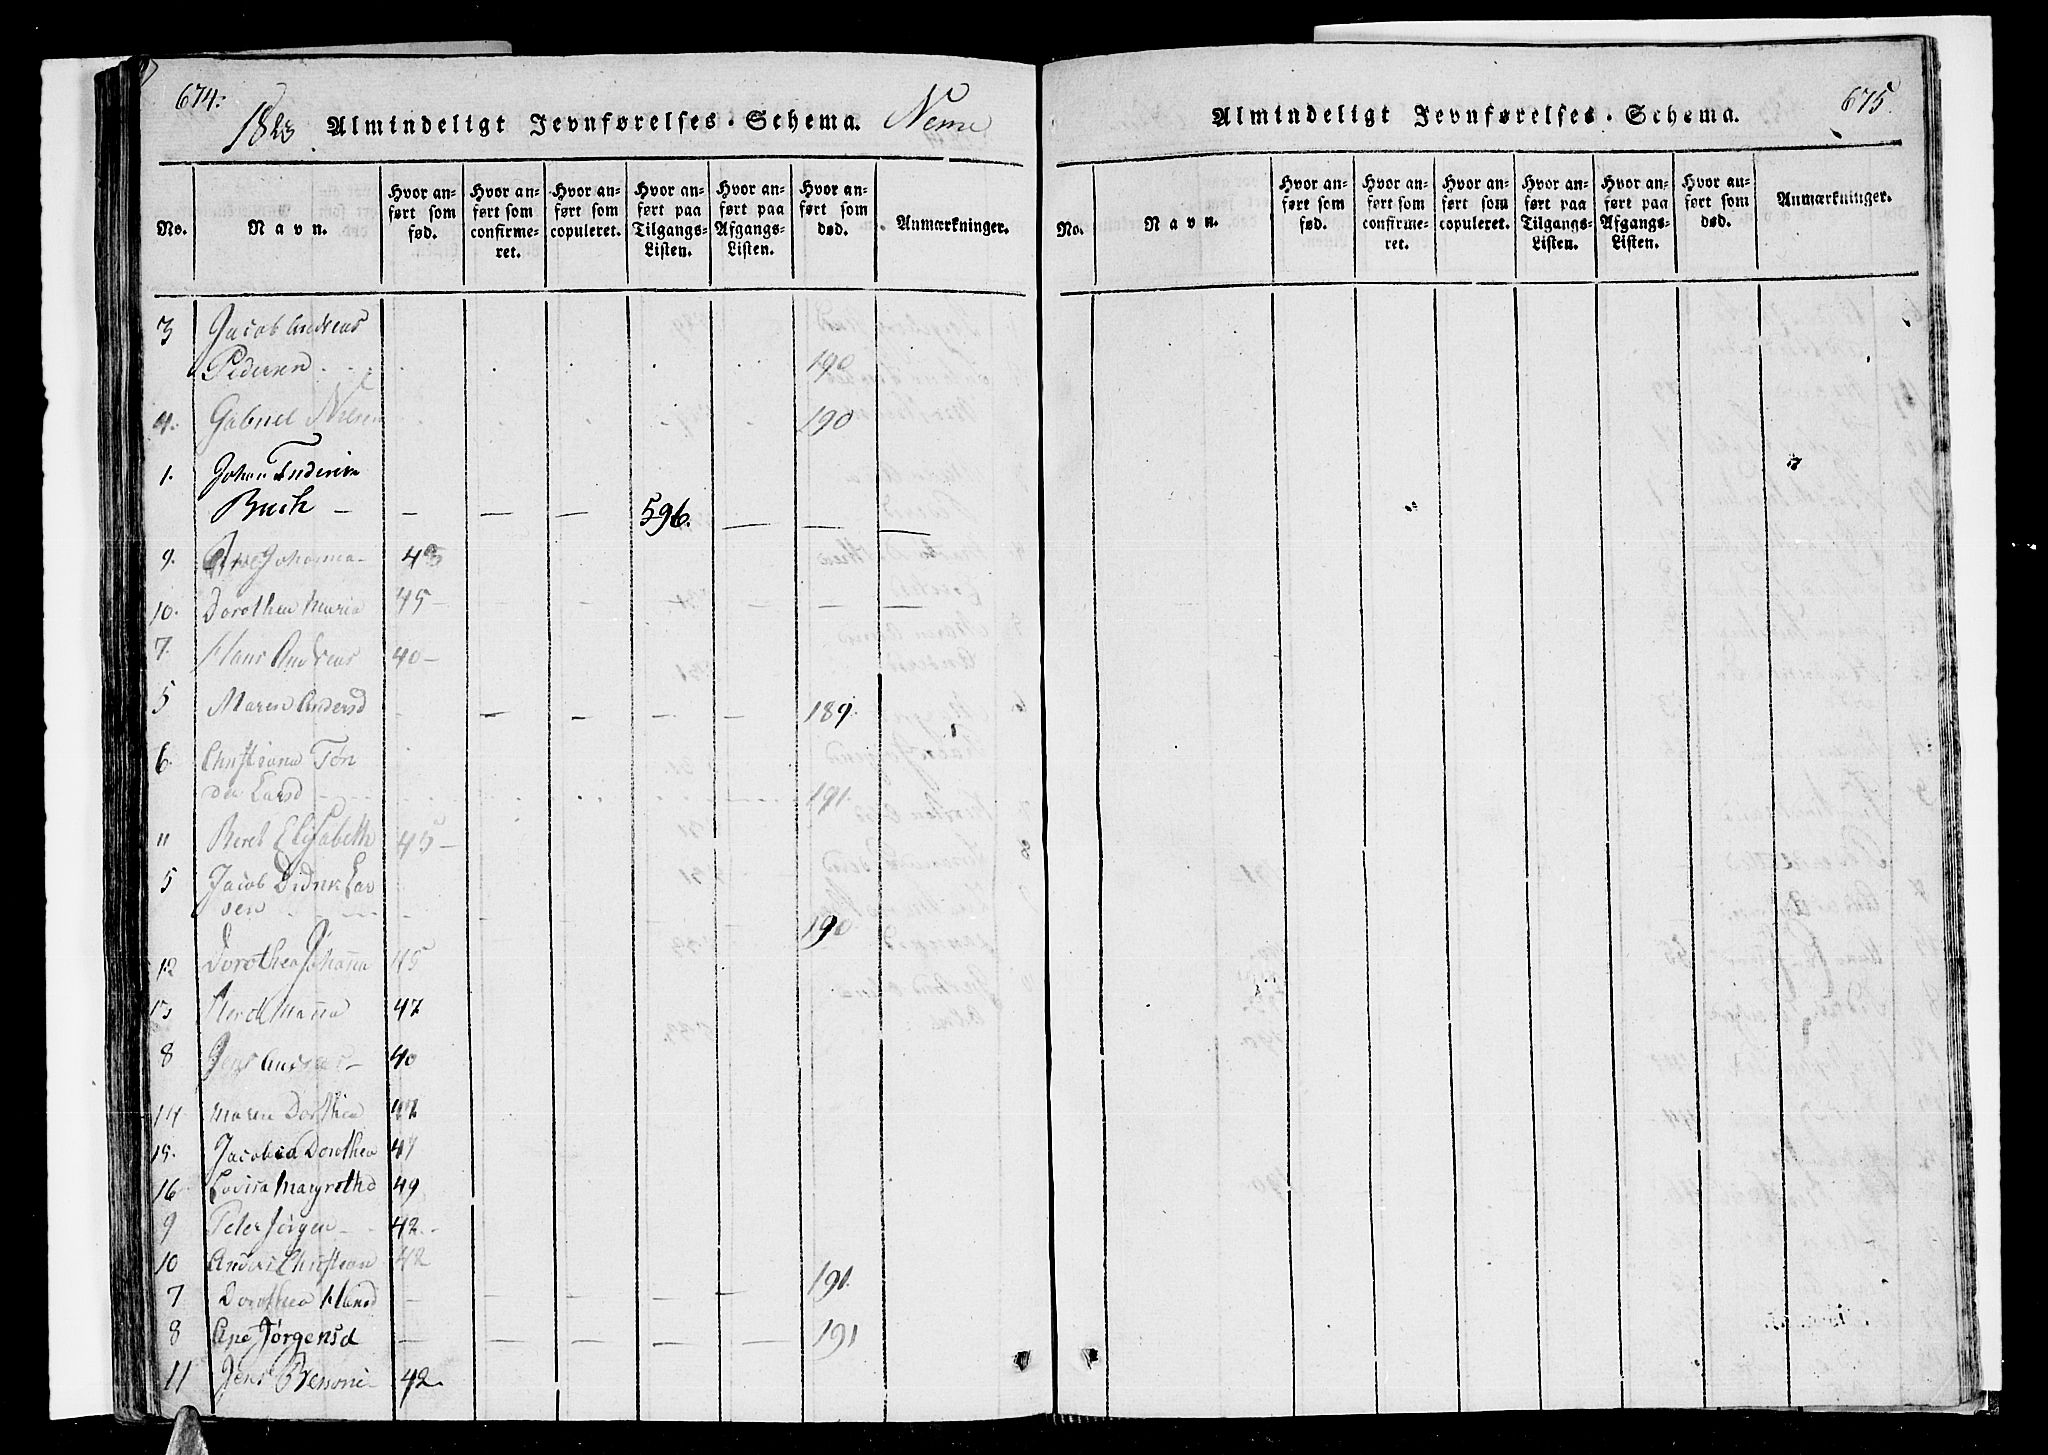 674.
1823 Almindeligt Jevnførelses-Schema. Nesne
No. Navn. Hvor anført som fød. Hvor anført som confirmeret. Hvor anført som copuleret. Hvor anført paa Tilgangs-Listen. Hvor anført paa Afgangs-Listen. Hvor anført som død. Anmærkninger.
3 Jacob Andreas
Pedersen . . . . . . . 190
4. Gabriel Nilsen . . . . . 190
1. Johan
Buch — — — — 596. — — —
9. Johanna 43
10. Dorothea Maria 45 — — — — — —
7. Hans Andreas 40 —
5 Maren Andersd — — — — — 189.
6. Christiana Tøn
der Larsd 191.
11 Beret Elisabeth 45 —
5 Jacob Didrik Lar
sen 190
12 Dorothea Johanna 45
13 47
8 Jens Andreas — 40
14 Maren Dorthea 47
15. Jacobea Dorothea 47
16 Lovisa Margretha 49
9 Peter Jørgen — 42 —
10 Anders Christian 42
7 Dorothea Hansd — — — — — 191.
8 Ane Jørgensd — — — — — 191
11 Jens 42.
675.
Almindeligt Jevnførelses-Schema.
No. Navn. Hvor anført som fød. Hvor anført som confirmeret. Hvor anført som copuleret. Hvor anført paa Tilgangs-Listen. Hvor anført paa Afgangs-Listen. Hvor anført som død. Anmærkninger.